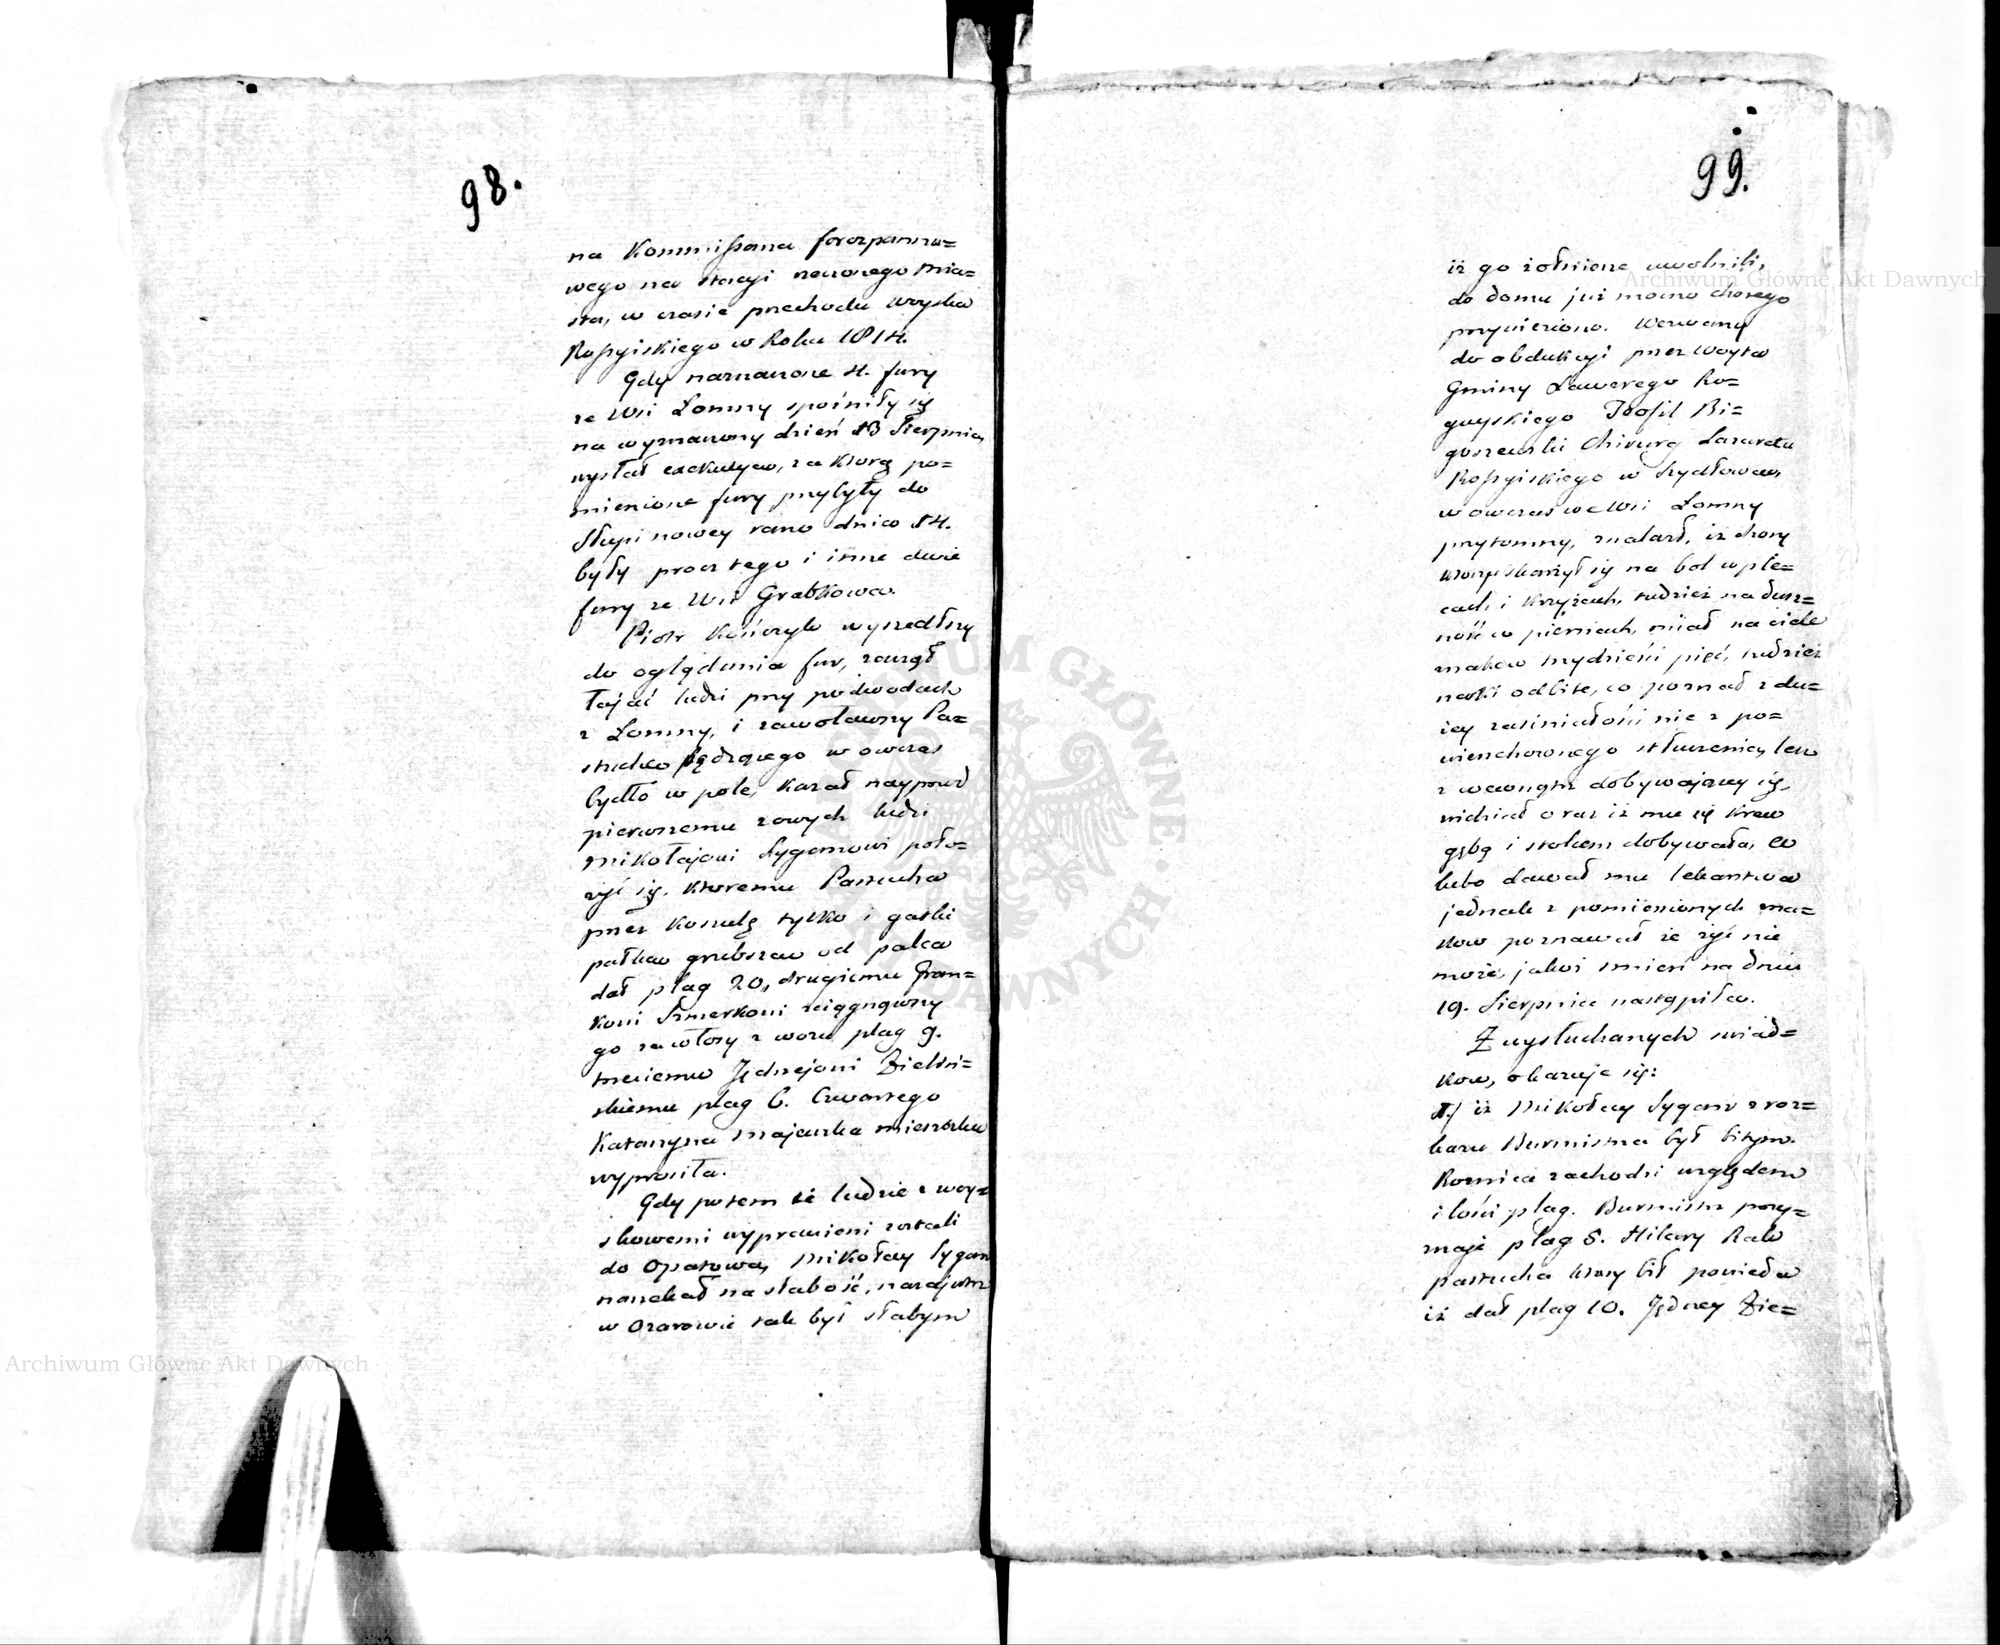 98.
na Kommissarza forszpanno=
wego na stacyi rzeczonego mia=
sta, w czasie przechodu woyska
Rossyiskiego w Roku 1814.
Gdy naznaczone 4. fury
ze Wsi Łomny spóźniły się
na wyznaczony dzień 13 Sierpnia,
wysłał exekucyą, za którą po=
mienione fury przybyły do
Słupi nowey rano dnia 14.
były procz tego i inne dwie
fury ze Wsi Grabkowa.
Piotr wyszedłszy
do oglądania fur, zaczął
łajać ludzi przy podwodach
z Łomny, i zawoławszy Pa=
stucha pędzącego w owczas
bydło w pole, kazał nayprzod
pierwszemu z owych ludzi
Mikołajowi Cyganowi poło=
żyć się. Któremu Pastucha
przez koszulę tylko i gatki
pałką grubszą od palca
dał plag 20, drugiemu Fran=
kowi Szmerkowi ściągnąwszy
go za włosy z woza plag 9.
trzeciemu Jędrzejowi Zieliń=
skiemu plag 6. Czwartego
Katarzyna Majewska mieszcka
wyprosiła.
Gdy potem ci ludzie z woy=
skowemi wyprawieni zostali
do Opatowa, Mikołay Cygan
narzekał na słabość, nazajutrz
w Ożarowie tak był słabym
99.
iż go żołnierze uwolnili,
do domu już mocno chorego
przywieziono. Wezwany
do obdukcyi przez Woyta
Gminy Xawerego Ro=
guyskiego Teofil Bi=
goszewski Chirurg Lazaretu
Rossyiskiego w Szydłowcu,
w owczas we Wsi Łomny
przytomny, znalazł, iż chory
skarżył się na bol w ple=
cach, i krzyżach, tudzież na dusz=
ność w piersiach, miał na ciele
znakow trzydzieści pięć, tudzież
nerki odbite, co poznał z du=
żey zasiniałości nie z po=
wierzchownego stłuczenia, lecz
z wewnątrz dobywającey się,
widział oraz iż mu się krew
gębą i stolcem dobywała, co
lubo dawał mu lekarstwa
jednak z pomienionych zna=
kow poznawał że żyć nie
może, jakoż śmierć na dniu
19. Sierpnia nastąpiła.
Z wysłuchanych świad=
kow, okazuje się:
1./ iż Mikołay Cygan z roz=
kazu Burmistrza był bitym.
Roznica zachodzi względem
ilości plag. Burmistrz przy=
znaje plag 8. Hilary Rak
pastucha ktory bił powieda
iż dał plag 10. Jędrzey Zie=
Archiwum Główne Akt Dawnych
Archiwum Główne Akt Dawnych
ARCHIWUM GŁÓWNE AKT DAWNYCH